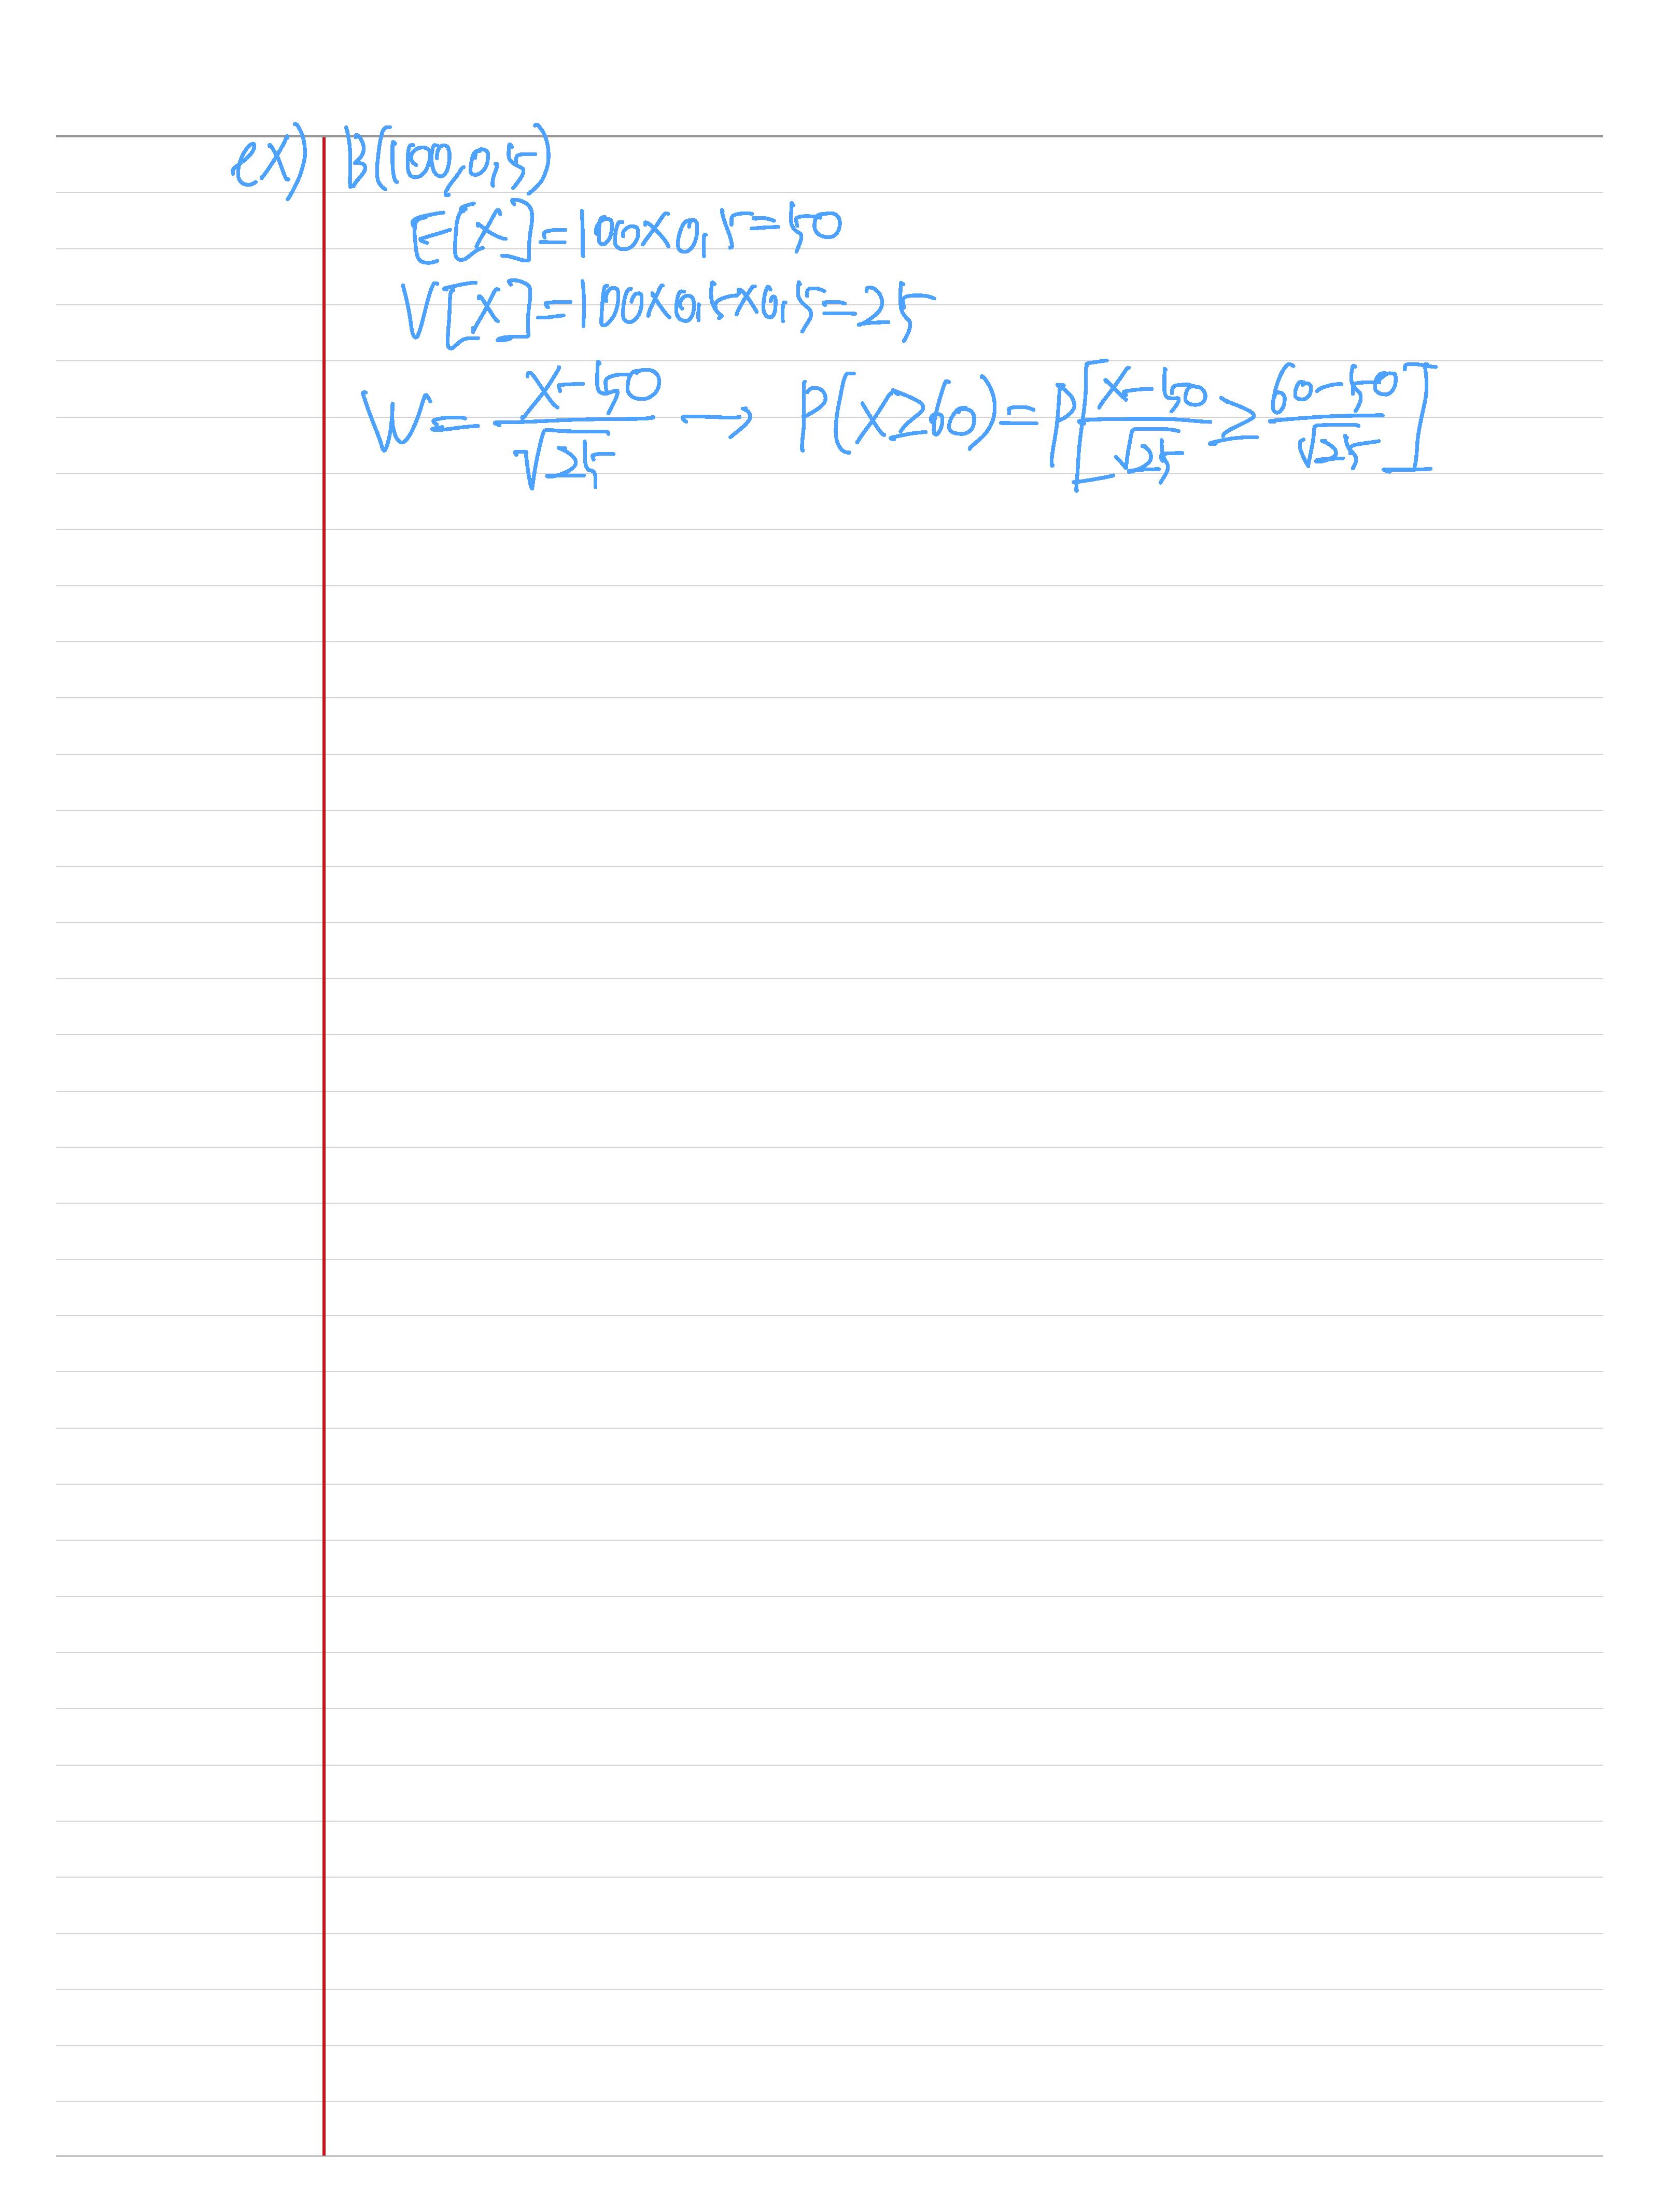 ex) B(100,0,5)
E[X]=100×0,5=50
V[X]=100×0,5×0,5=25
W=\frac{X-50}{\sqrt{25}} → P(X≥60)=P[\frac{X-50}{\sqrt{25}}≥\frac{60-50}{\sqrt{25}}]